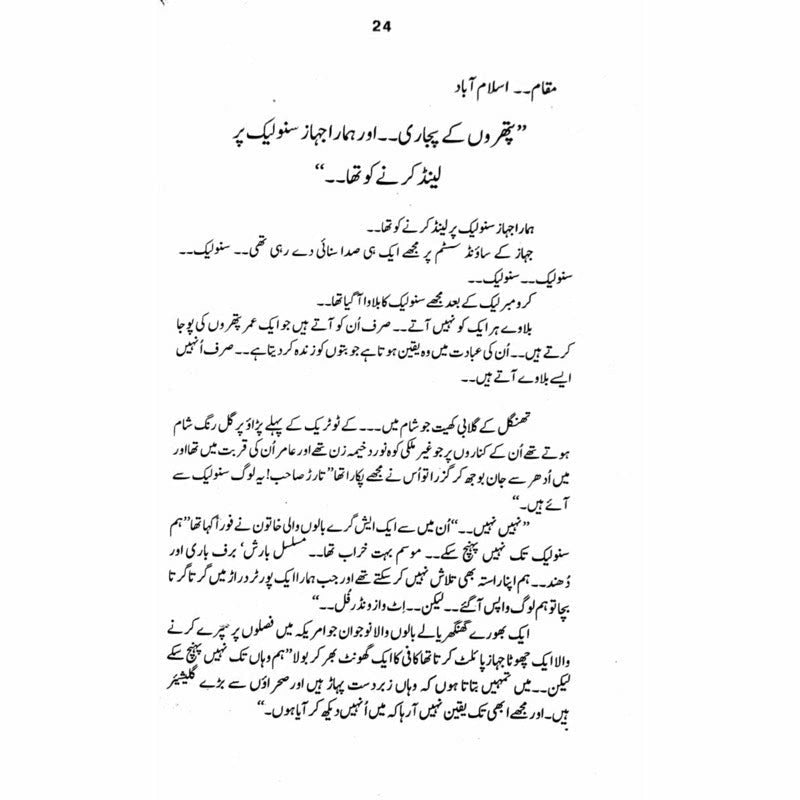 24
مقام۔۔ اسلام آباد
”پتھروں کے پجاری۔۔اور ہمارا جہاز سنولیک پر
لینڈ کرنے کو تھا۔۔“
ہمارا جہاز سنولیک پر لینڈ کرنے کو تھا۔۔
جہاز کے ساؤنڈ سسٹم پر مجھے ایک ہی صدا سنائی دے رہی تھی۔۔ سنولیک۔۔
سنولیک۔۔ سنولیک۔۔
کرومبر لیک کے بعد مجھے سنولیک کا بلاوا آ گیا تھا۔۔
بلاوے ہر ایک کو نہیں آتے۔۔ صرف اُن کو آتے ہیں جو ایک عمر پتھروں کی پوجا
کرتے ہیں۔۔ اُن کی عبادت میں وہ یقین ہوتا ہے جو بتوں کو زندہ کر دیتا ہے۔۔ صرف اُنہیں
ایسے بلاوے آتے ہیں۔۔
تھنگل کے گلابی کھیت جو شام میں۔۔۔ کے ٹو ٹریک کے پہلے پڑاؤ پر گل رنگ شام
ہوتے تھے اُن کے کناروں پر جو غیر ملکی کوہ نورد خیمہ زن تھے اور عامر اُن کی قربت میں تھا اور
میں اُدھر سے جان بوجھ کر گزرا تو اُس نے مجھے پکارا تھا ”تارڑ صاحب! یہ لوگ سنولیک سے
آئے ہیں۔“
”نہیں نہیں۔۔“ اُن میں سے ایک ایش گرے بالوں والی خاتون نے فوراً کہا تھا ”ہم
سنولیک تک نہیں پہنچ سکے۔۔ موسم بہت خراب تھا۔۔ مسلسل بارش‘ برف باری اور
دُھند۔۔ ہم اپنا راستہ بھی تلاش نہیں کر سکتے تھے اور جب ہمارا ایک پورٹر دراڑ میں گرتا گرتا
بچا تو ہم لوگ واپس آ گئے۔۔ لیکن۔۔ اِٹ واز ونڈر فُل۔۔“
ایک بھورے گھنگھریالے بالوں والا نوجوان جو امریکہ میں فصلوں پر سپرے کرنے
والا ایک چھوٹا جہاز پائلٹ کرتا تھا کافی کا ایک گھونٹ بھر کر بولا ”ہم وہاں تک نہیں پہنچ سکے
لیکن۔۔ میں تمہیں بتاتا ہوں کہ وہاں زبردست پہاڑ ہیں اور صحراؤں سے بڑے گلیشیئر
ہیں۔ اور مجھے ابھی تک یقین نہیں آ رہا کہ میں اُنہیں دیکھ کر آیا ہوں۔“